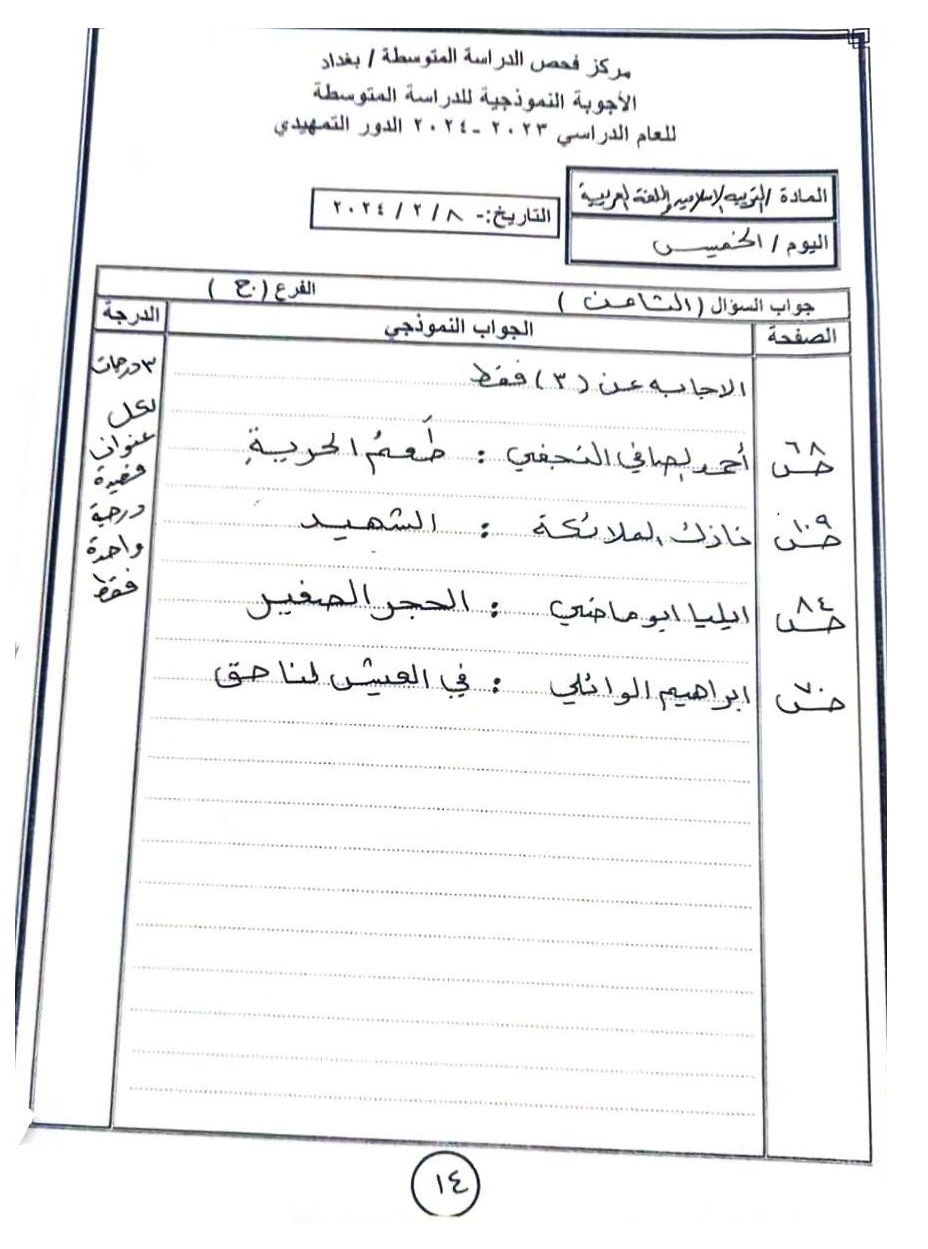 مركز فحص الدراسة المتوسطة / بغداد
الأجوبة النموذجية للدراسة المتوسطة
للعام الدراسي ٢٠٢٣ -٢٠٢٤ الدور التمهيدي
المادة / التربية الاسلامية واللغة العربية
التاريخ:- ٨ / ٢ / ٢٠٢٤
اليوم / الخميس
جواب السؤال ( الثامن ) الفرع ( ج )
الصفحة الجواب النموذجي الدرجة
الاجابه عن (٣) فقط
٣ درجات
لكل
عنوان
قصيدة
درجة
واحدة
فقط
ص٦٨ أحمد الصافي النجفي : طَعمُ الحريةِ
ص١٠٩ نازك الملائكة : الشهيد
ص٨٤ ايليا ابو ماضي : الحجر الصغير
ص٧٠ ابراهيم الوائلي : في العيش لنا حق
١٤